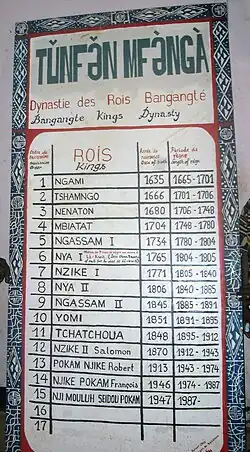 TǓNFƏ̂N MFƏ̀NGÀ
Dynastie des Rois Bangangté
Bangangte Kings Dynasty
ROÏS
Kings
1 NGAMI 1635 1665-1701
2 TSHAMNGO 1666 1701-1706
3 NENATON 1680 1706-1748
4 MBIATAT 1704 1748-1780
5 NGASSAM 1734 1780-1804
6 NYA I 1765 1804-1805
7 NZIKE I 1771 1805-1840
8 NYA II 1806 1840-1885
9 NGASSAM II 1845 1885-1891
10 YOMI 1851 1891-1895
11 TCHATCHOUA 1848 1895-1912
12 NZIKE II Salomon 1870 1912-1943
13 POKAM NJIKE Robert 1913 1943-1974
14 NJIKE POKAM François 1946 1974-1987
15 NJI MOULUH SEIDOU POKAM 1947 1987-
16
17